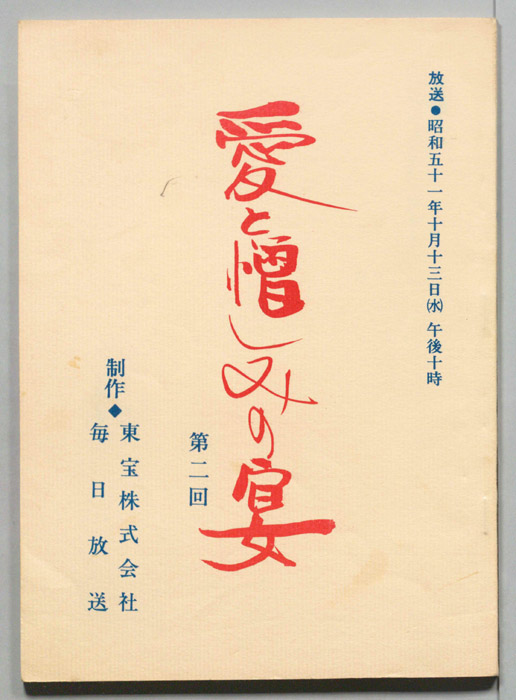 放送●昭和五十一年十月十三日㈬ 午後十時
愛と憎しみの宴
第二回
制作◆東宝株式会社
毎日放送